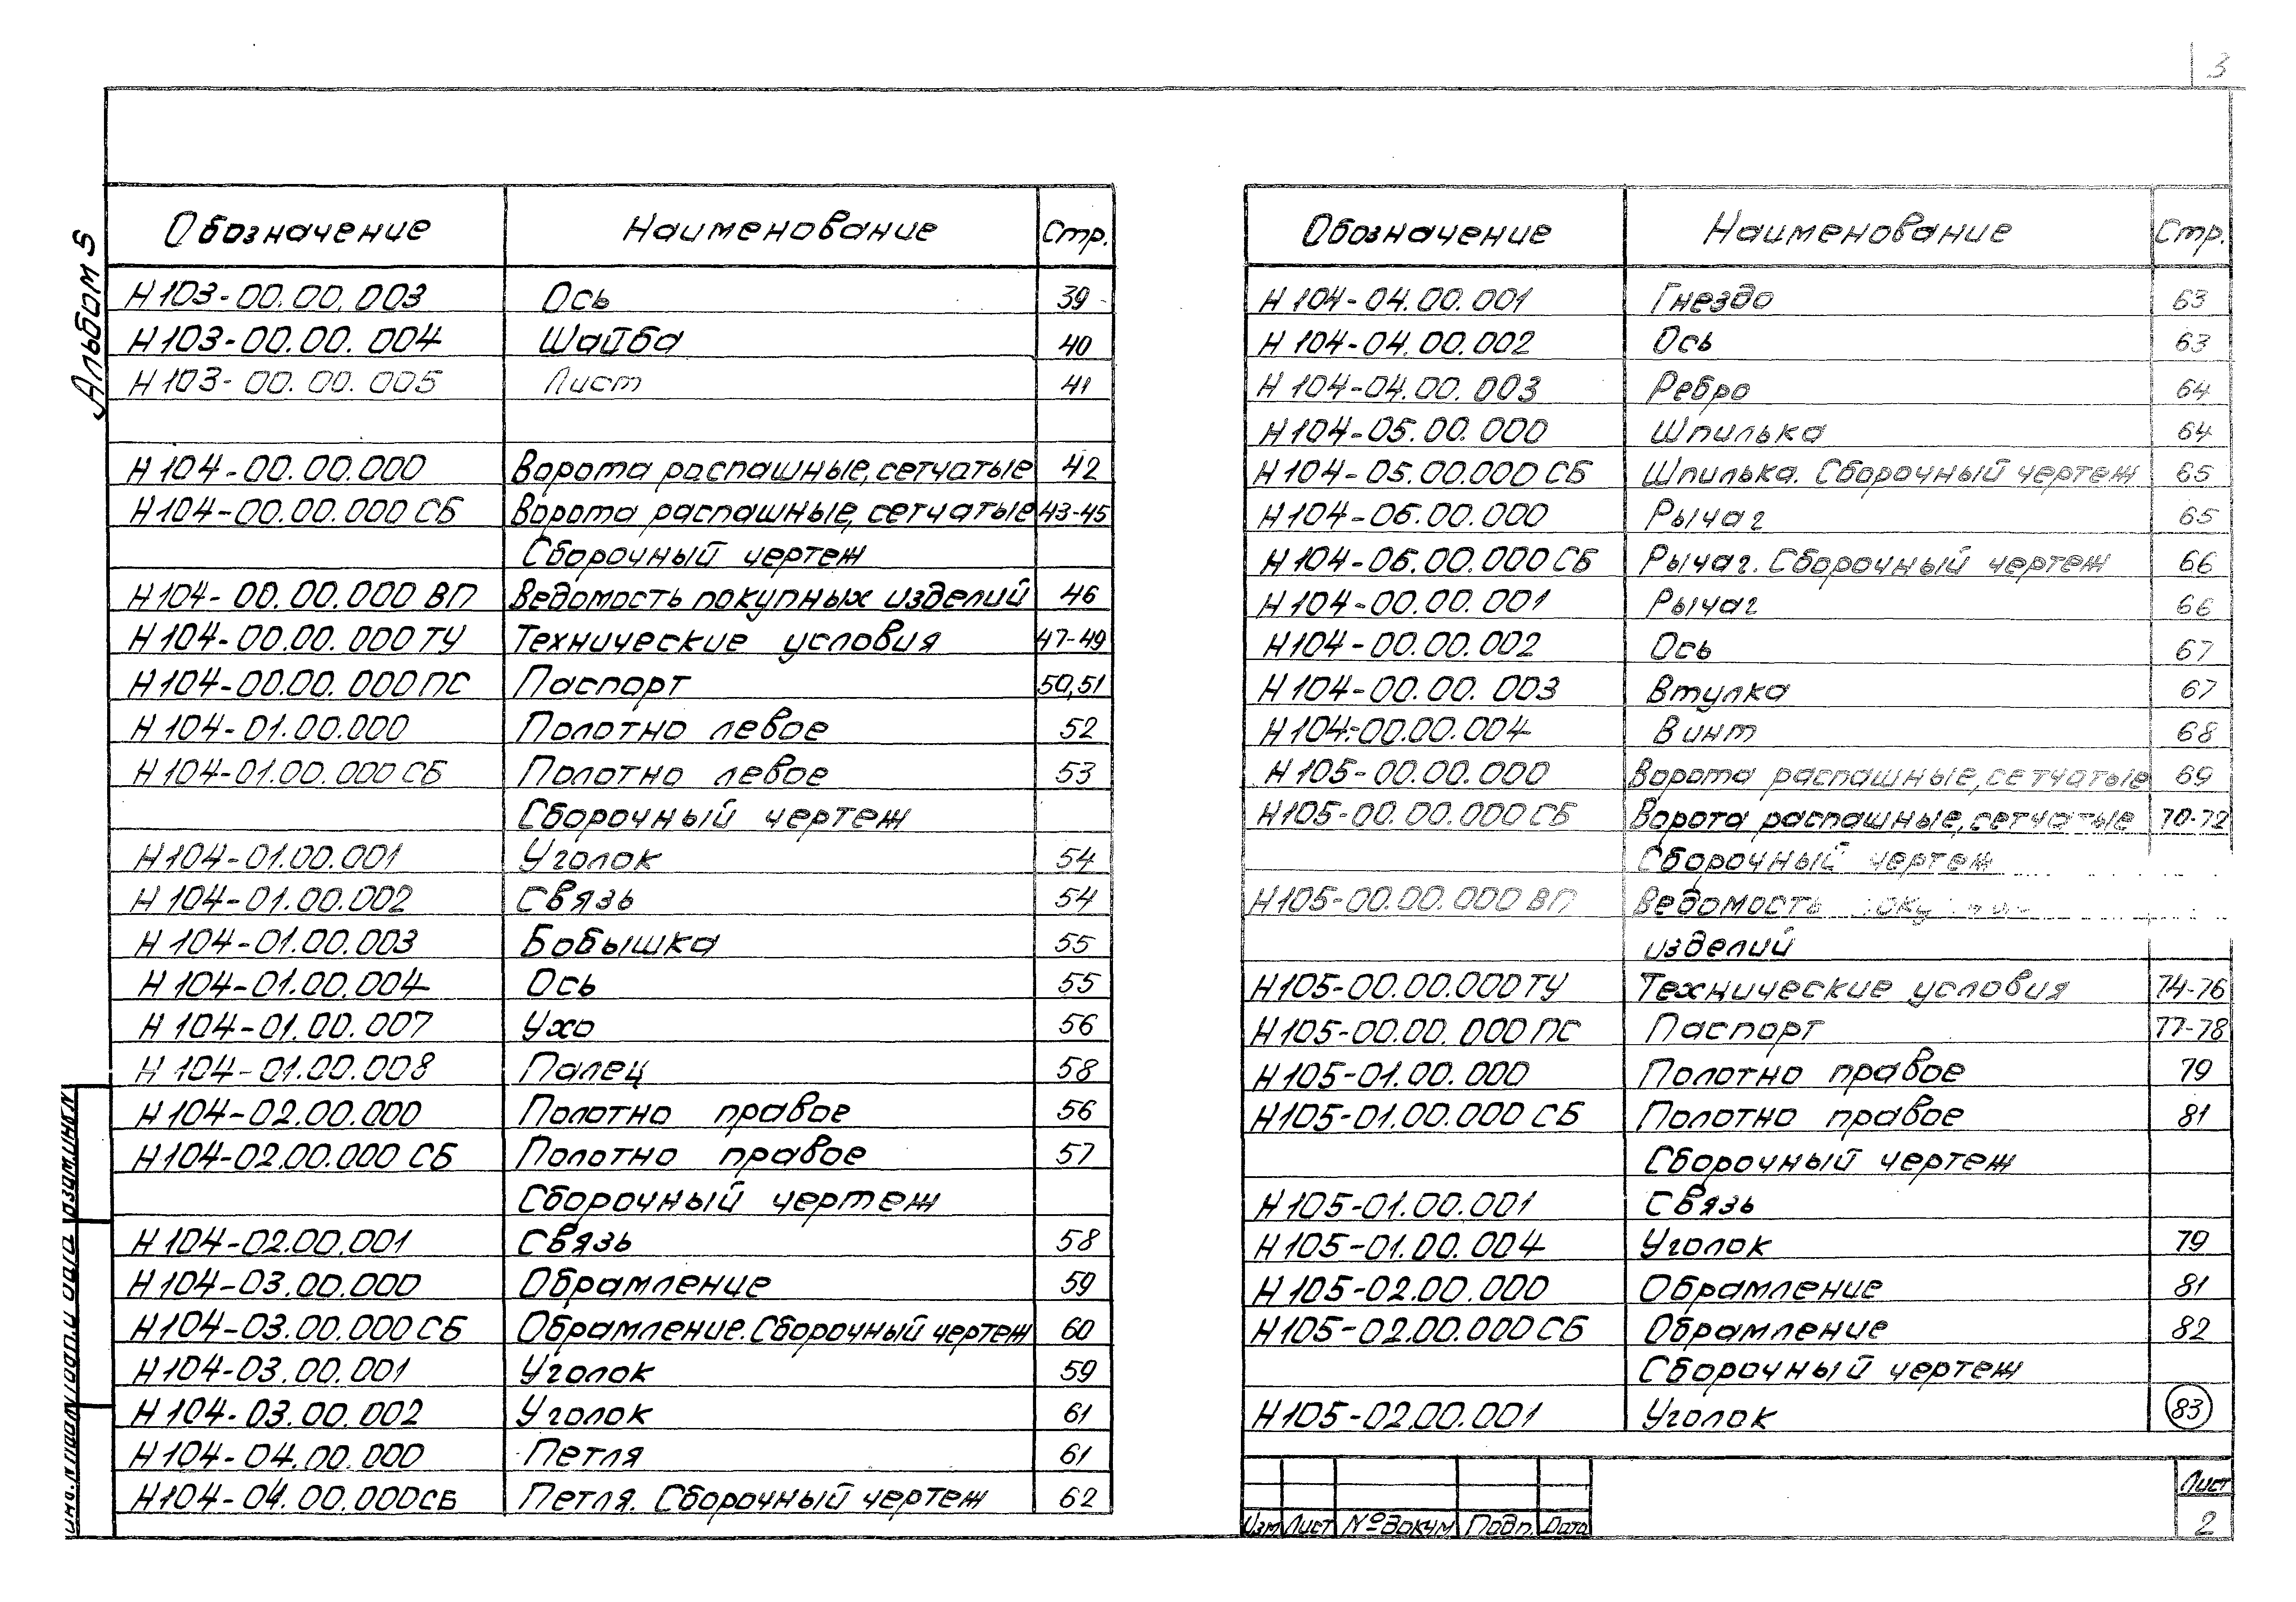 3
Альбом 5
Обозначение Наименование Стр.
Н103-00.00.003 Ось 39
Н103-00.00.004 Шайба 40
Н103-00.00.005 Лист 41
Н104-00.00.000 Ворота распашные, сетчатые 42
Н104-00.00.000 СБ Ворота распашные, сетчатые 43-45
Сборочный чертеж
Н104-00.00.000 ВП Ведомость покупных изделий 46
Н104-00.00.000 ТУ Технические условия 47-49
Н104-00.00.000 ПС Паспорт 50,51
Н104-01.00.000 Полотно левое 52
Н104-01.00.000 СБ Полотно левое 53
Сборочный чертеж
Н104-01.00.001 Уголок 54
Н104-01.00.002 Связь 54
Н104-01.00.003 Бобышка 55
Н104-01.00.004 Ось 55
Н104-01.00.007 Ухо 56
Н104-01.00.008 Палец 58
Н104-02.00.000 Полотно правое 56
Н104-02.00.000 СБ Полотно правое 57
Сборочный чертеж
Н104-02.00.001 Связь 58
Н104-03.00.000 Обрамление 59
Н104-03.00.000 СБ Обрамление. Сборочный чертеж 60
Н104-03.00.001 Уголок 59
Н104-03.00.002 Уголок 61
Н104-04.00.000 Петля 61
Н104-04.00.000СБ Петля. Сборочный чертеж 62
Обозначение Наименование Стр.
Н104-04.00.001 Гнездо 63
Н104-04.00.002 Ось 63
Н104-04.00.003 Ребро 64
Н104-05.00.000 Шпилька 64
Н104-05.00.000 СБ Шпилька. Сборочный чертеж 65
Н104-06.00.000 Рычаг 65
Н104-06.00.000 СБ Рычаг. Сборочный чертеж 66
Н104-00.00.001 Рычаг 66
Н104-00.00.002 Ось 67
Н104-00.00.003 Втулка 67
Н104-00.00.004 Винт 68
Н105-00.00.000 Ворота распашные, сетчатые 69
Н105-00.00.000 СБ Ворота распашные, сетчатые 70-72
Сборочный чертеж
Н105-00.00.000 ВП Ведомость
изделий
Н105-00.00.000 ТУ Технические условия 74-76
Н105-00.00.000 ПС Паспорт 77-78
Н105-01.00.000 Полотно правое 79
Н105-01.00.000 СБ Полотно правое 81
Сборочный чертеж
Н105-01.00.001 Связь
Н105-01.00.004 Уголок 79
Н105-02.00.000 Обрамление 81
Н105-02.00.000 СБ Обрамление 82
Сборочный чертеж
Н105-02.00.001 Уголок 83
Изм Лист № докум Подп. Дата
Лист
2